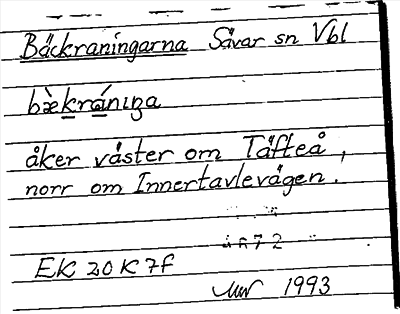 Bäckraningarna Sävar sn Vbl
bæ̀krániŋa
åker väster om Täfteå,
norr om Innertavlevägen.
EK 20 K 7f
1993